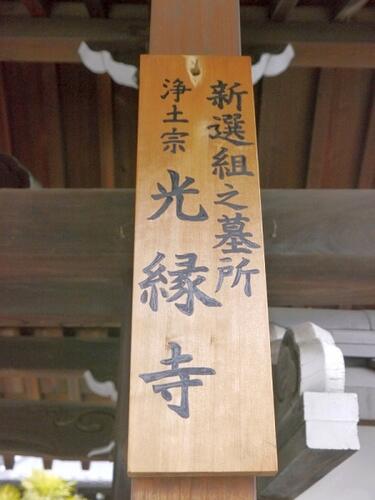 新選組之墓所
浄土宗
光縁寺